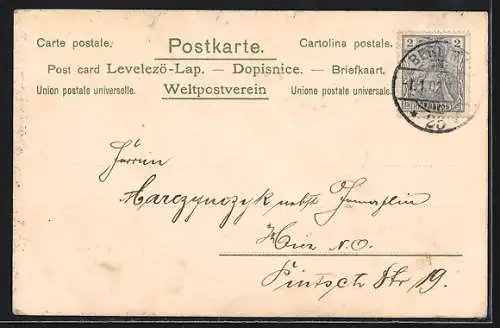 Carte postale. Postkarte. Cartolina postale.
Post card Levelezö-Lap. — Dopisnice. — Briefkaart.
Union postale universelle. Weltpostverein Unione postale universale.
2 2
BERLIN
28
Herrn
Marczynczyk nebst Gemahlin
Hier N.O.
Pintsch Str 19.